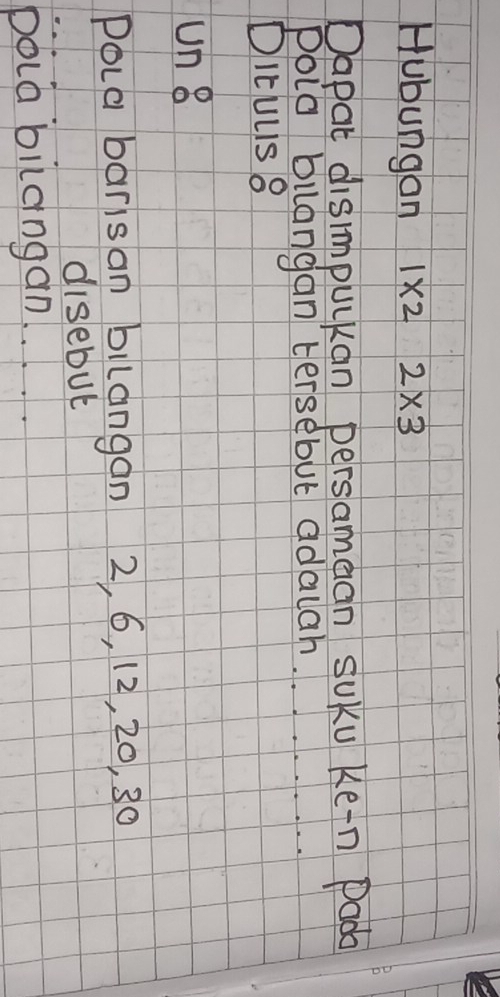 Hubungan 1x2 2x3
Dapat disimpulkan persamaan suku ke-n pada
pola bilangan tersebut adalah..........
Ditulis:
Un:
Pola barisan bilangan 2, 6, 12, 20, 30
...... disebut
pola bilangan......